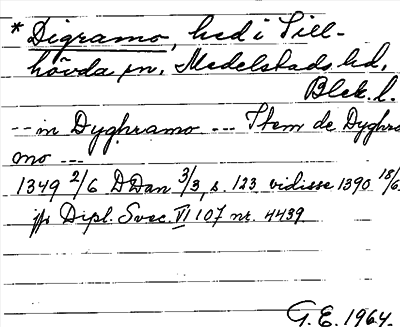 * Digramo, hed i Till-
hövda sn. Medelstads hd.
Blek. l.
-- in Dyghramo --- Item de Dyghra
mo ---
1349 2/6 DDan 3/3, s. 123 vidisse 1390 18/6
jfr Dipl. Svec. VI 107 nr. 4439.
G.E. 1964.